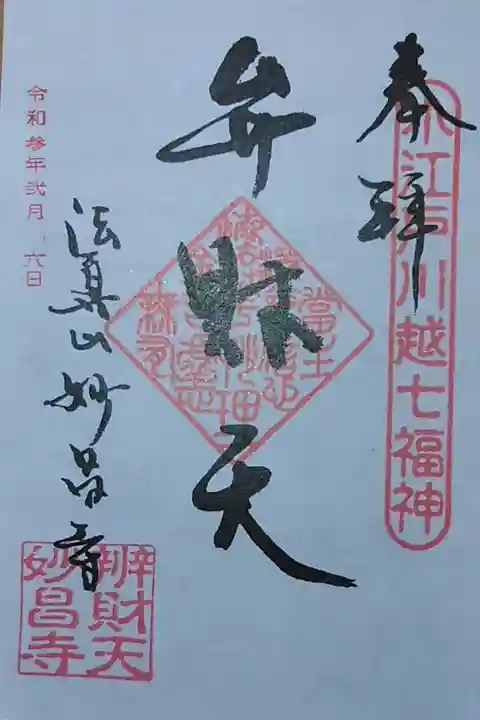 奉拝
小江戸川越七福神
弁財天
令和参年弐月 六日
法眞山妙昌寺
辨財天
妙昌寺